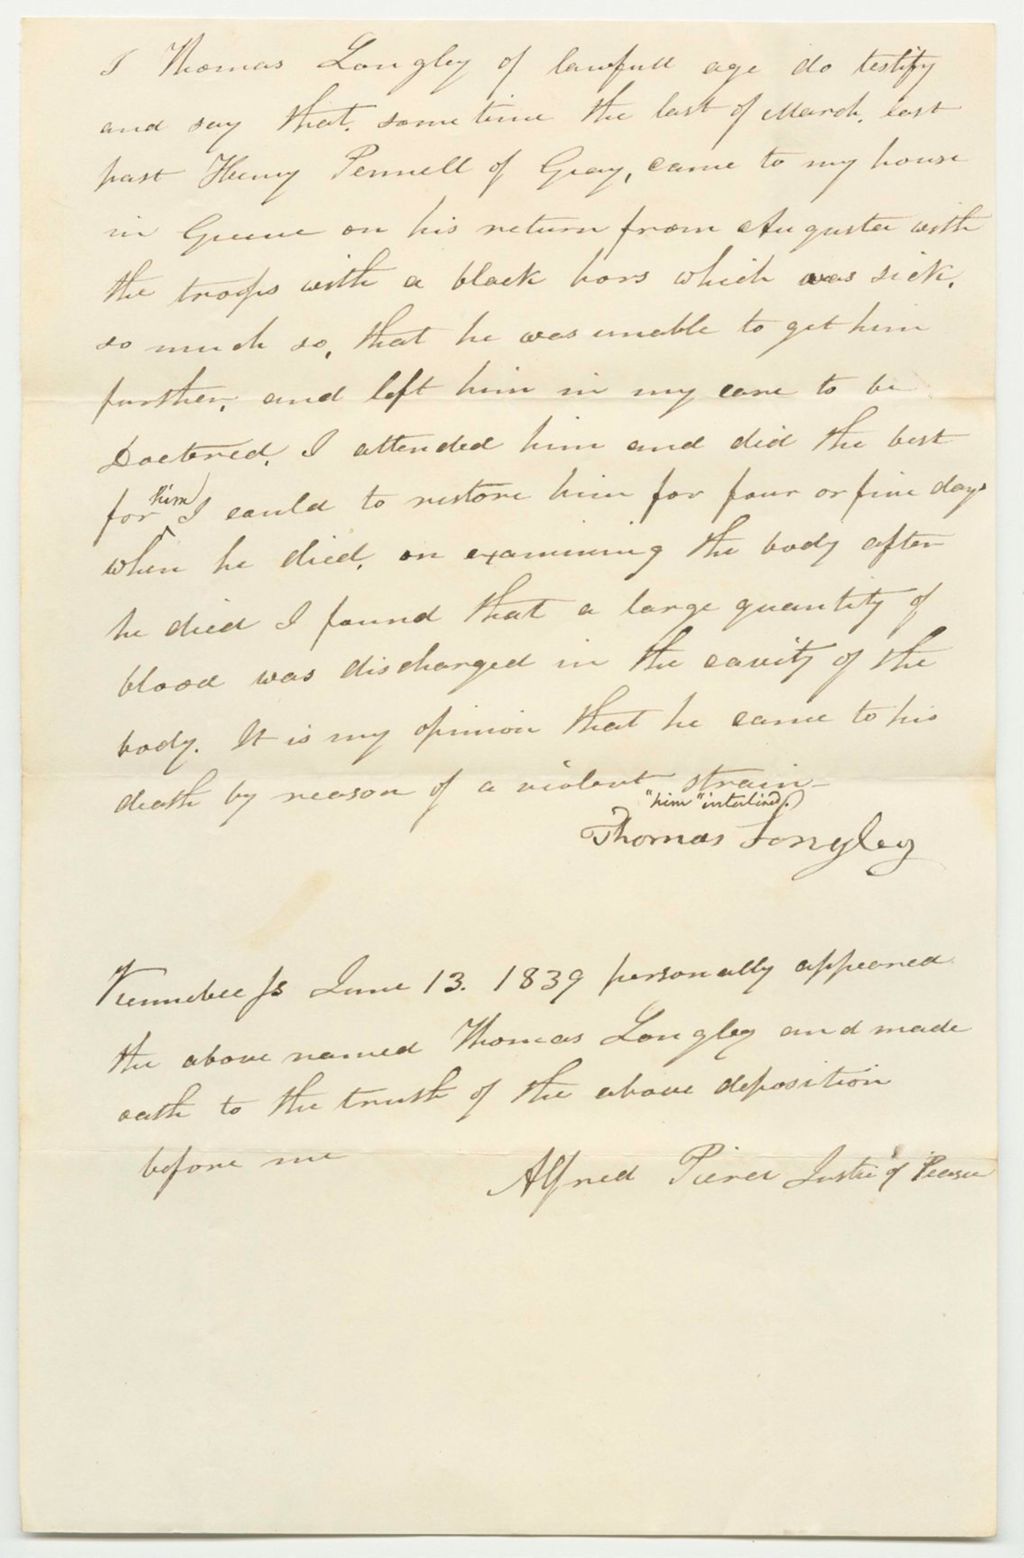 I Thomas Longley of lawfull age do testify
and say that, some time the last of March, last
past Henry Pennell of Gray, came to my house
in Greene on his return from Augusta with
the troops with a black hors which was sick,
so much so, that he was unable to get him
further, and left him in my care to be
Doctered, I attended him and did the best
for him I could to restore him for four or five days
when he died, on examining the body after
he died I found that a large quantity of
blood was discharged in the cavity of the
body. It is my opinion that he came to his
death by reason of a violent strain
"him" interlined.
Thomas Longley
Kennebec ss June 13. 1839 personally appeared
the above named Thomas Longley and made
oath to the truth of the above deposition
before me
Alfred Pierce Justice of Peace